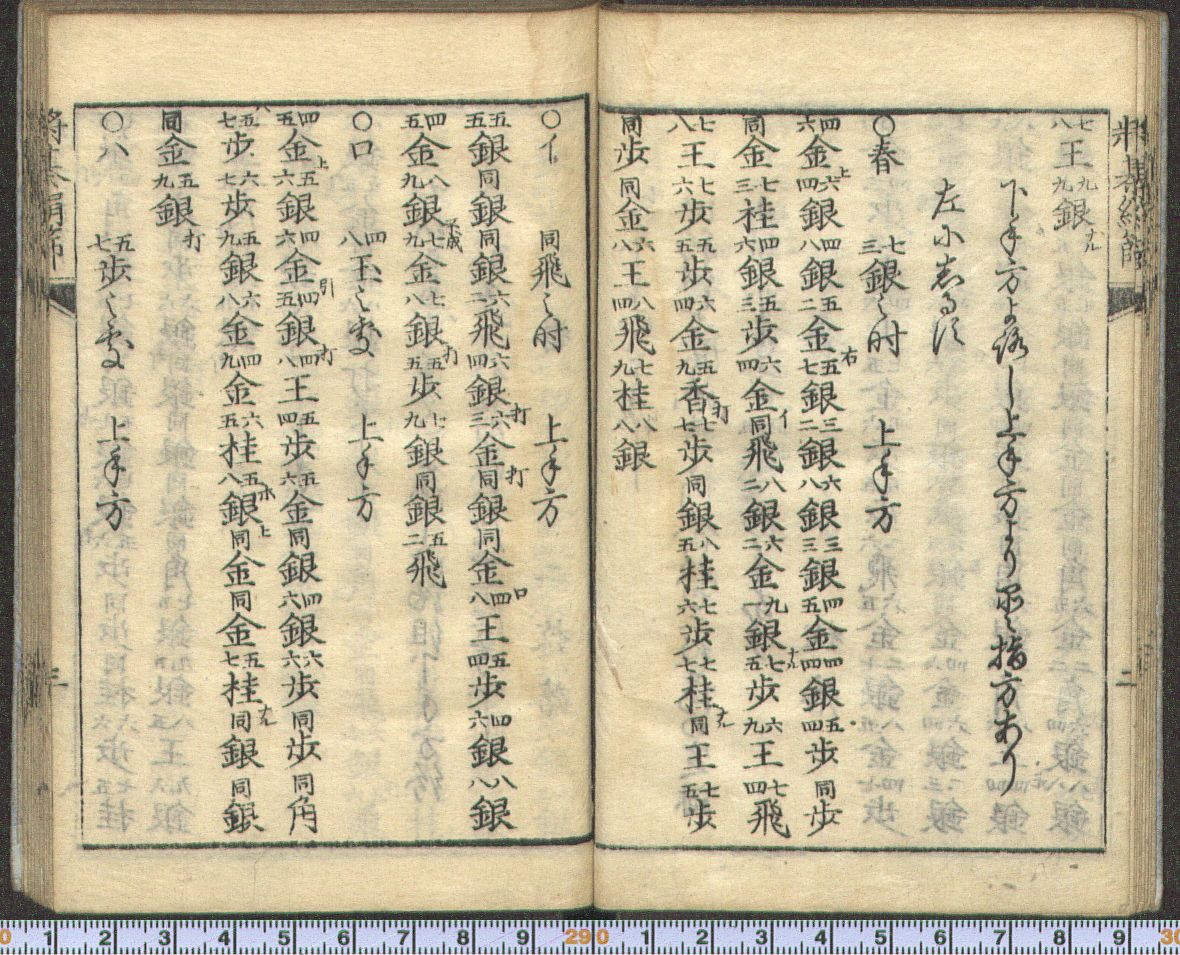 将棊絹篩 二
七八王九九銀ナル
下手方よろしし上手方より品々指方あり
左に志るす
〇春 七三銀之时 上手方
四六金上六四銀四八銀五二金右五七銀三二銀六八銀三三銀四五金四四銀五四歩同歩
同金七三桂四六銀五三歩六四金イ同飛八二銀六二金九一銀ナル七五歩六九王七四飛
七八王七六歩五五歩六四金五九香打七七歩同銀八五桂七六歩七七桂ナル同王七五歩
同歩同金六八王八四飛七九桂八八銀
〇イ 同飛之时 上手方
五五銀同銀同銀六二飛六四銀六三金打同銀打同金四八王ロ五四歩四六銀八八銀
四五金八九銀不成七九金七八銀打五五歩七九銀同銀五二飛
〇ロ 四八王之変 上手方
四五金五六銀上四六金四五銀引四八王打五四歩五六金同銀四六銀六六歩同歩同角
五七歩ハ六七歩五九銀六八金四九金六五桂五八銀ホ同金上同金五七桂ナル同銀同銀
同金五九銀打
〇ハ 五七歩之変 上手方
将棊絹篩 三